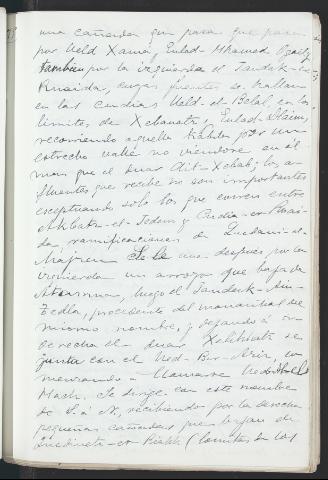 una cañada que para que pasa
por Ueld Xama, Eulad-Mhamed
también por la izquierda el Tandak-
Ruaida, cuyas fuentes se hallan
en las Cudias Uld-el-Belal, en los
límites de Xebanats, Eulad-Slaim,
recorriendo aquella kabila por un
estrecho valle no viendose en él
mas que el duar Ait-Xebab; los a-
fluentes que recibe no son importantes
exceptuando solo los que corren entre
Akbatz-el-Jedam y Cudia-er-Ruai-
da, ramificaciones de
Se le une después por la
izquierda un arroyo que baja de
luego el Tandak-Ain-
Zedla, procedente del manantial del
mismo nombre, y dejando á su
derecha el duar se
junta con el Ued-Bu-Azis, co
menzando á llamarse Ued
Mash. Se dirige con este nombre
de S. á N, recibiendo por la derecha
pequeñas cañadas que bajan de
(lomitas en los